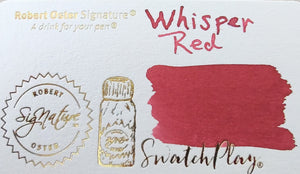 Robert Oster Signature®
A drink for your pen®
Whisper
Red
ROBERT
SigNature
OSTER
SwatchPlay®